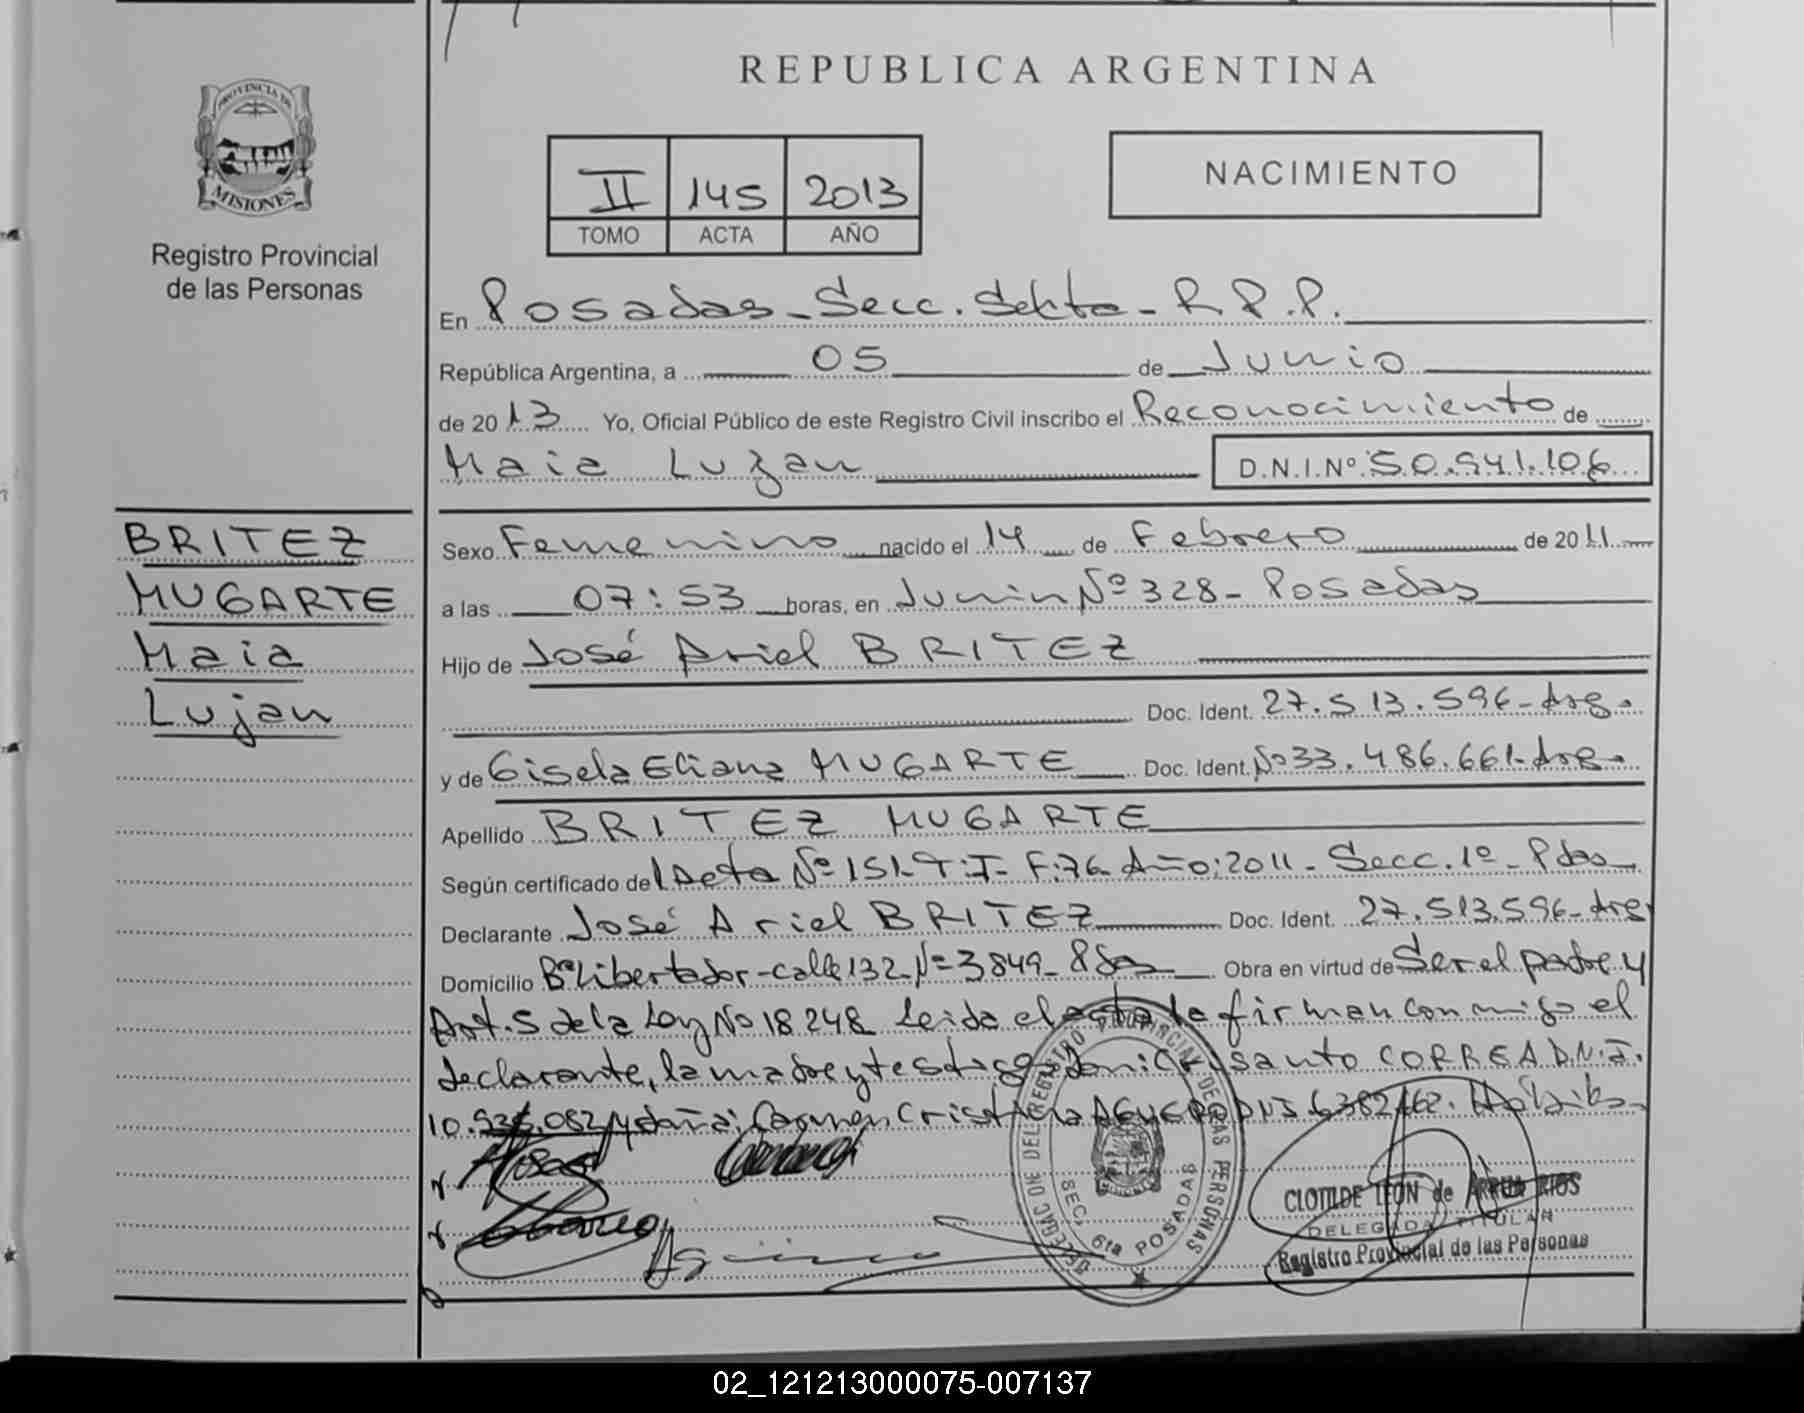 REPUBLICA ARGENTINA
PROVINCIA DE
MISIONES
Registro Provincial
de las Personas
II 145 2013
TOMO ACTA AÑO
NACIMIENTO
En Posadas - Secc. Sexta - R.P.P.
República Argentina, a 05 de Junio
de 2013 Yo, Oficial Público de este Registro Civil inscribo el Reconocimiento de
Maia Luzan D.N.I.Nº 50.941.106
BRITEZ
MUGARTE
Maia
Lujan
Sexo Femenino nacido el 14 de Febrero de 2011
a las 07:53 horas, en Junin Nº 328 - Posadas
Hijo de José Ariel BRITEZ
Doc. Ident. 27.513.596 - Arg.
y de Gisela Eliana MUGARTE Doc. Ident. Nº 33.486.661 - Arg.
Apellido BRITEZ MUGARTE
Según certificado del Acta Nº 151 - T:I - F:76 Año:2011 - Secc. 1º - Pdas
Declarante José Ariel BRITEZ Doc. Ident. 27.513.596 - Arg
Domicilio Bº Libertador - calle 132 - Nº 3849 - Pdas Obra en virtud de Ser el padre y
Art. 5 de la Ley Nº 18248 Leida el acta la firman conmigo el
declarante, la madre y testigos Don: Crisanto CORREA D.N.I.
10. .082 y doña: Carmen Cristina AGUERO DNI 6382162.
DELEGAC DE DEL REGISTRO PROVINCIAL DE LAS PERSONAS
SEC. 6ta POSADAS
CLOTILDE LEON de ARRUA RIOS
DELEGADA TITULAR
Registro Provincial de las Personas
02_121213000075-007137